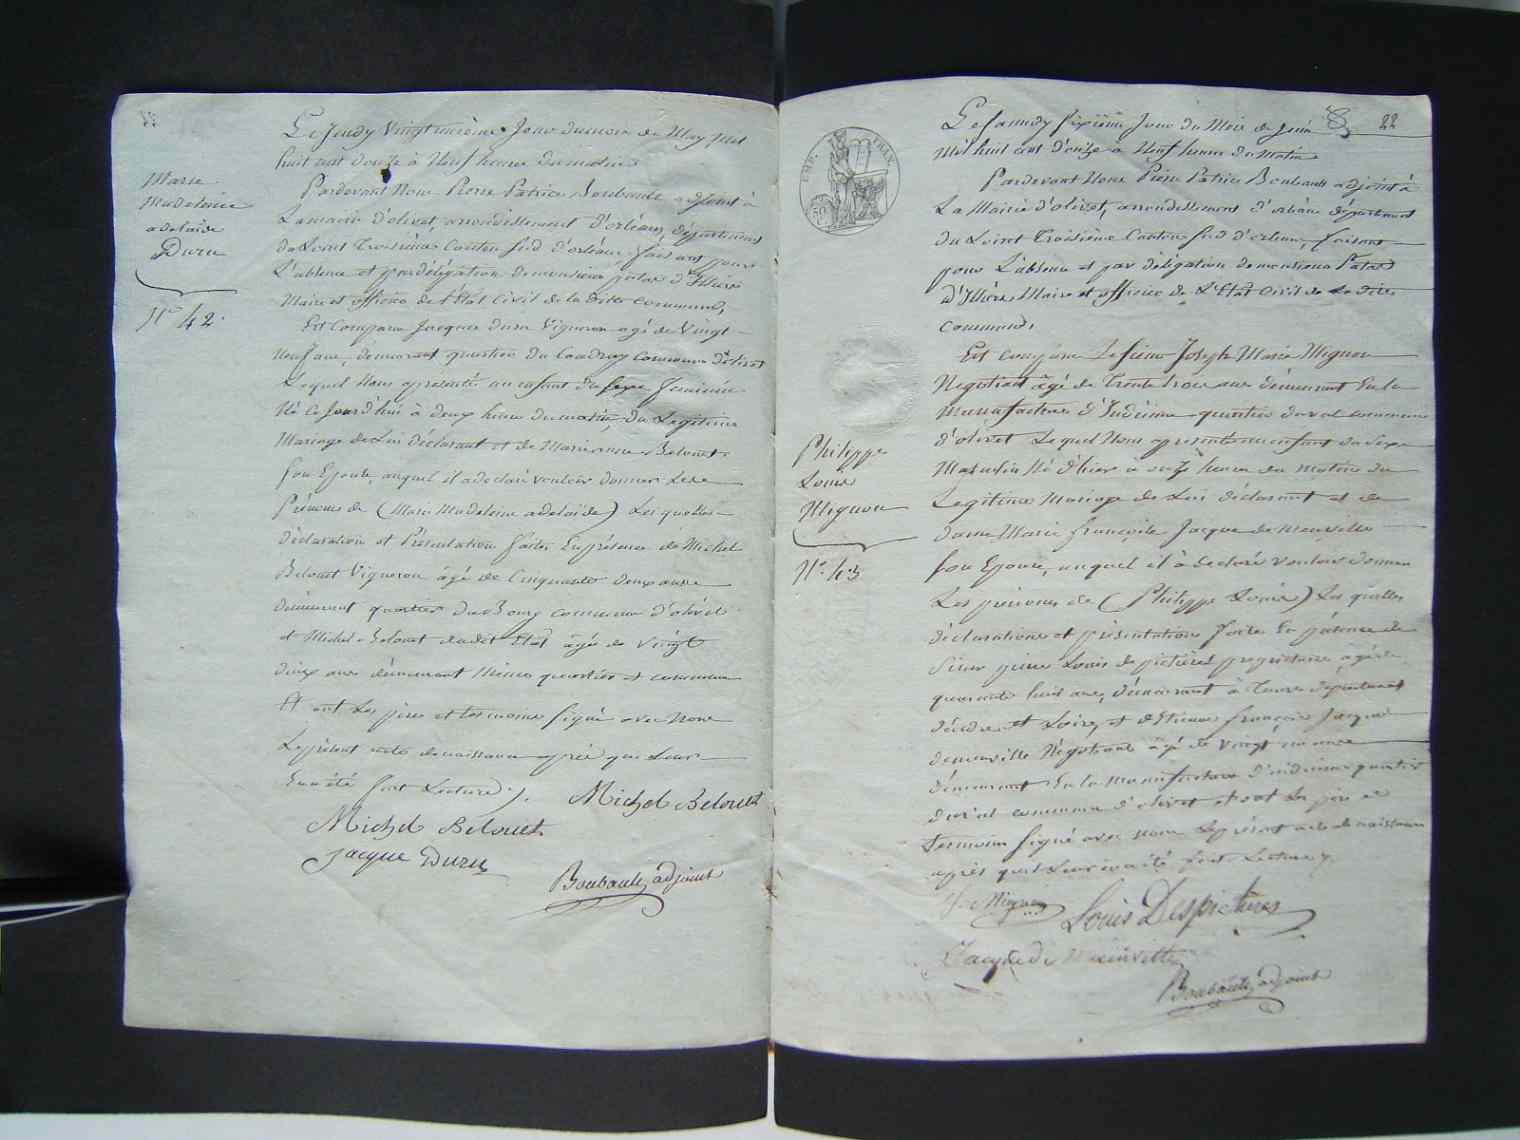 Marie
Madeleine
adelaide
Duru
N.° 42.
Le Jeudy Vingt unième Jour du mois de May mil
huit cent douze à Neuf heures du matin
Pardevant Nous Pierre Patrice Boubault adjoint à
La mairie d'olivet, arrondissement d'orléans, département
du Loiret Troisième Canton sud d'orléans, faisant pour
L'absence et par délégation de monsieur patas d'Illiers
Maire et officier de l'Etat Civil de la Ditte Commune,
Est Comparu Jacques duru Vigneron agé de Vingt
Neuf ans, demeurant quartier du Coudray commune d'olivet
Lequel Nous a présenté un enfant du sexe Feminin
Né Ce Jourd'hui à deux heures du matin, du Legitime
Mariage de Lui déclarant et de Marie anne Belouet
son Epouse, auquel il a déclaré vouloir donner Les
Prénoms de (Marie Madeleine adelaide) Les quelles
déclaration et Présentation faites En présence de Michel
Belouet Vigneron âgé de Cinquante deux ans
demeurant quartier du Bourg commune d'olivet
et Michel Belouet dudit Etat âgé de vingt
deux ans demeurant même quartier et commune
Et ont Les père et témoins signé avec Nous
Le présent acte de naissance après que Leur
En a été fait Lecture ./.
Michel Belouet
Michel Belouet
jacque Duru
Boubault, adjoint
22
EMP. FRAN.
50
Le Samedy sixième Jour du Mois de Juin
Mil huit cent douze à Neuf heures du Matin
Pardevant Nous Pierre Patrice Boubault adjoint à
La Mairie d'olivet, arrondissement d'orléans département
du Loiret Troisième Canton sud d'orléans, faisant
pour L'absence et par délégation de monsieur Patas
D'Illiers Maire et officier de L'Etat Civil de La dite
commune,
Est comparu Le sieur Joseph Marie Mignon
Negotiant âgé de Trente trois ans demeurant En la
Manufacture d'Indienne quartier du val commune
d'olivet Lequel Nous a présenté un enfant du sexe
Masculin Né d'hier à onze heures du matin du
Legitime Mariage de Lui déclarant et de
dame Marie françoise Jacque de Mainville
son Epouse, auquel il à déclaré vouloir donner
Les prénoms de (Philippe Louis) Les quelles
déclarations et présentation faites En présence de
Sieur pierre Louis despictières propriétaire âgé de
quarante huit ans, demeurant à Tours département
d'indre et Loire, et d'Etienne françois Jacque
demainville Négotiant âgé de vingt un ans
demeurant En la Manufacture d'indienne quartier
du val commune d'olivet et ont Les père et
témoins signé avec nous Le présent acte de naissance
après que Leur en a été fait Lecture ./.
Philippe
Louis
Mignon
N.° 43
Mignon
Louis Despictières
Jacque de Mainville
Boubault, adjoint